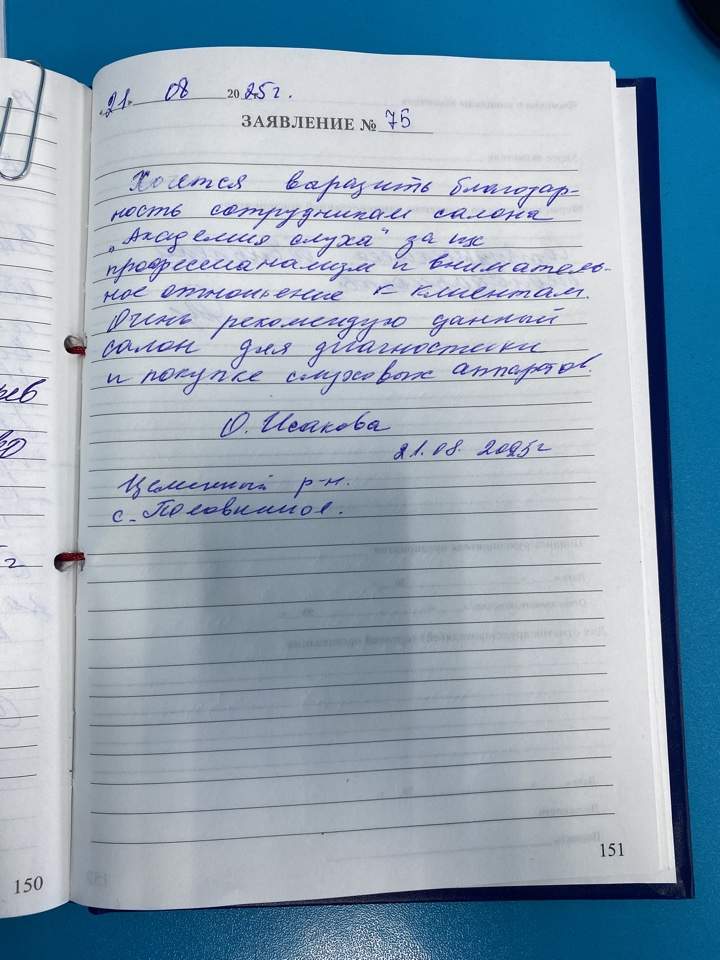 «21» 08 2025г.
ЗАЯВЛЕНИЕ № 75
Хочется варазить благодар-
ность сотрудникам салона
„Академия слуха" за их
профессианализм и вниматель-
ное отношение к клиентам.
Очень рекомендую данный
салон для диагностики
и покупке слуховых аппартов.
О. Исакова
21.08. 2025г
Целинный р-н.
с. Половинное.
рев
во
г
150
151